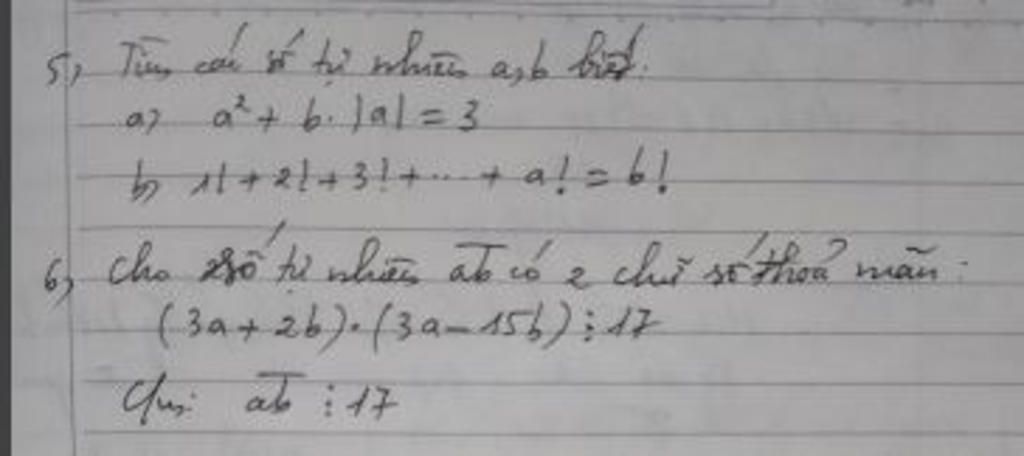 5, Tìm các số tự nhiên a,b biết:
a) a² + b . |a| = 3
b) 1! + 2! + 3! + ... + a! = b!
6, Cho số tự nhiên \overline{ab} có 2 chữ số thoả mãn:
(3a + 2b).(3a - 15b) ⋮ 17
\overline{ab} ⋮ 17